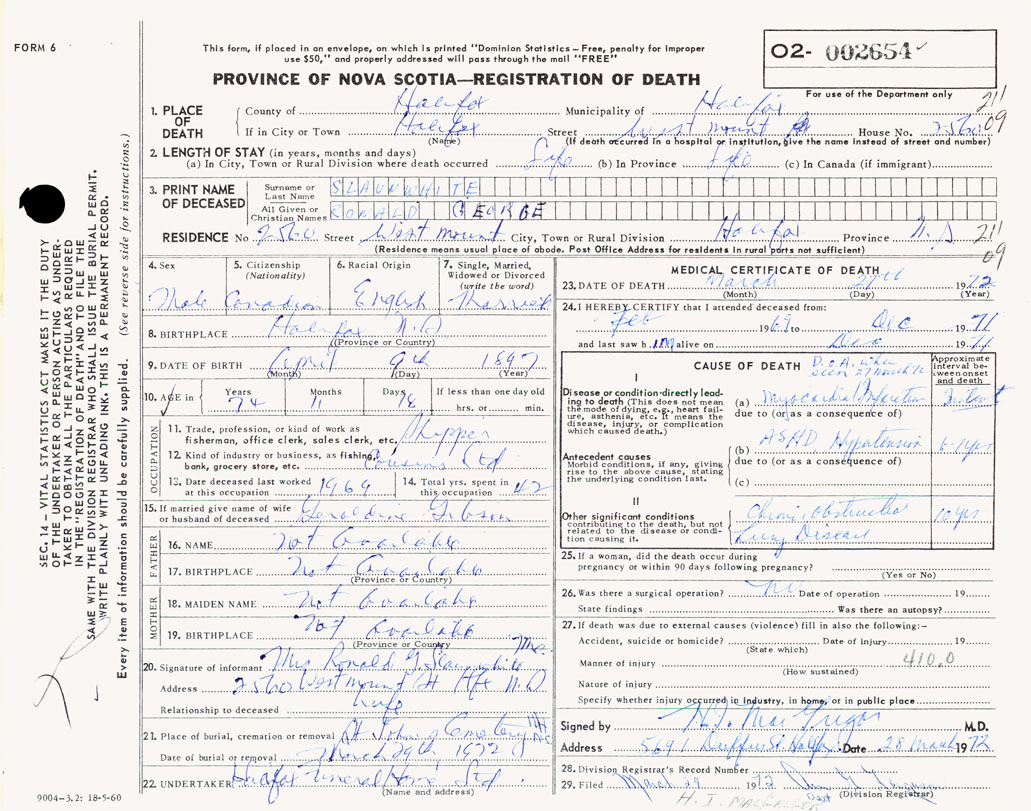 FORM 6
This form, if placed in an envelope, on which is printed "Dominion Statistics – Free, penalty for improper
use $50," and properly addressed will pass through the mail "FREE"
PROVINCE OF NOVA SCOTIA—REGISTRATION OF DEATH
O2- 002654
For use of the Department only
211
09
1. PLACE OF DEATH
County of Halifax Municipality of Halifax
If in City or Town Halifax Street West mount House No. 2560
(Name) (If death occurred in a hospital or institution, give the name instead of street and number)
2. LENGTH OF STAY (in years, months and days)
(a) In City, Town or Rural Division where death occurred Life (b) In Province Life (c) In Canada (if immigrant)
3. PRINT NAME OF DECEASED
Surname or Last Name SLAUNWHITE
All Given or Christian Names RONALD GEORGE
RESIDENCE No 2560 Street West mount City, Town or Rural Division Halifax Province N.S 211
09
(Residence means usual place of abode. Post Office Address for residents in rural parts not sufficient)
4. Sex Male
5. Citizenship (Nationality) Canadian
6. Racial Origin English
7. Single, Married, Widowed or Divorced (write the word) Married
8. BIRTHPLACE Halifax N.S
(Province or Country)
9. DATE OF BIRTH April 9th 1897
(Month) (Day) (Year)
10. AGE in Years 74 Months 11 Days 18 If less than one day old hrs. or min.
OCCUPATION
11. Trade, profession, or kind of work as fisherman, office clerk, sales clerk, etc. Shipper
12. Kind of industry or business, as fishing, bank, grocery store, etc. Cousins Ltd
13. Date deceased last worked at this occupation 1969
14. Total yrs. spent in this occupation 42
15. If married give name of wife or husband of deceased Geraldine Gibson
FATHER
16. NAME Not Available
17. BIRTHPLACE Not Available
(Province or Country)
MOTHER
18. MAIDEN NAME Not Available
19. BIRTHPLACE Not Available
(Province or Country)
20. Signature of informant Mrs Ronald G. Slaunwhite
Address 2560 West mount St Hfx N.S
Relationship to deceased wife
21. Place of burial, cremation or removal St Johns Cemetery
Date of burial or removal March 29th, 1972
22. UNDERTAKER Halifax Funeral Home Ltd
(Name and address)
9004–3.2: 18-5-60
MEDICAL CERTIFICATE OF DEATH
23. DATE OF DEATH March 27th 1972
(Month) (Day) (Year)
24. I HEREBY CERTIFY that I attended deceased from:
Feb 1969 to Dec 1971
and last saw him alive on Dec 1971
CAUSE OF DEATH D.O.A. when seen 27 March 72
Approximate interval between onset and death
I
Disease or condition directly leading to death (This does not mean the mode of dying, e.g., heart failure, asthenia, etc. It means the disease, injury, or complication which caused death.)
(a) Myocardial Infarction Instant
due to (or as a consequence of)
Antecedent causes
Morbid conditions, if any, giving rise to the above cause, stating the underlying condition last.
(b) ASHD Hypertension
due to (or as a consequence of)
(c)
II
Other significant conditions
contributing to the death, but not related to the disease or condition causing it.
Chronic obstructive 10 yrs
Lung Disease
25. If a woman, did the death occur during pregnancy or within 90 days following pregnancy?
(Yes or No)
26. Was there a surgical operation? no Date of operation 19
State findings Was there an autopsy?
27. If death was due to external causes (violence) fill in also the following:–
Accident, suicide or homicide? Date of injury 19
(State which)
Manner of injury 410.0
(How sustained)
Nature of injury
Specify whether injury occurred in industry, in home, or in public place
Signed by H.I. MacGregor M.D.
Address 5691 Duffus St Halifax Date 28 March 1972
28. Division Registrar's Record Number
29. Filed March 29 1972
(Division Registrar)
H. I. MACGREGOR
SEC. 14 – VITAL STATISTICS ACT MAKES IT THE DUTY
OF THE UNDERTAKER OR PERSON ACTING AS UNDERTAKER TO OBTAIN ALL THE PARTICULARS REQUIRED
IN THE "REGISTRATION OF DEATH" AND TO FILE THE
SAME WITH THE DIVISION REGISTRAR WHO SHALL ISSUE THE BURIAL PERMIT.
WRITE PLAINLY WITH UNFADING INK. THIS IS A PERMANENT RECORD.
Every item of information should be carefully supplied. (See reverse side for instructions.)